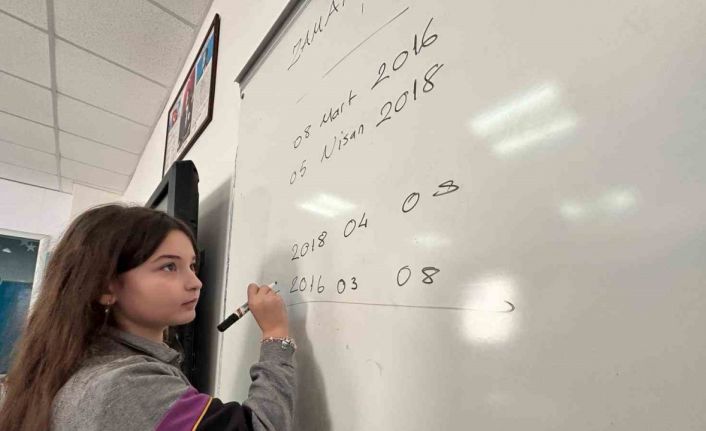 ZAMA
08 Mart 2016
05 Nisan 2018
2018 04
2016 03 08